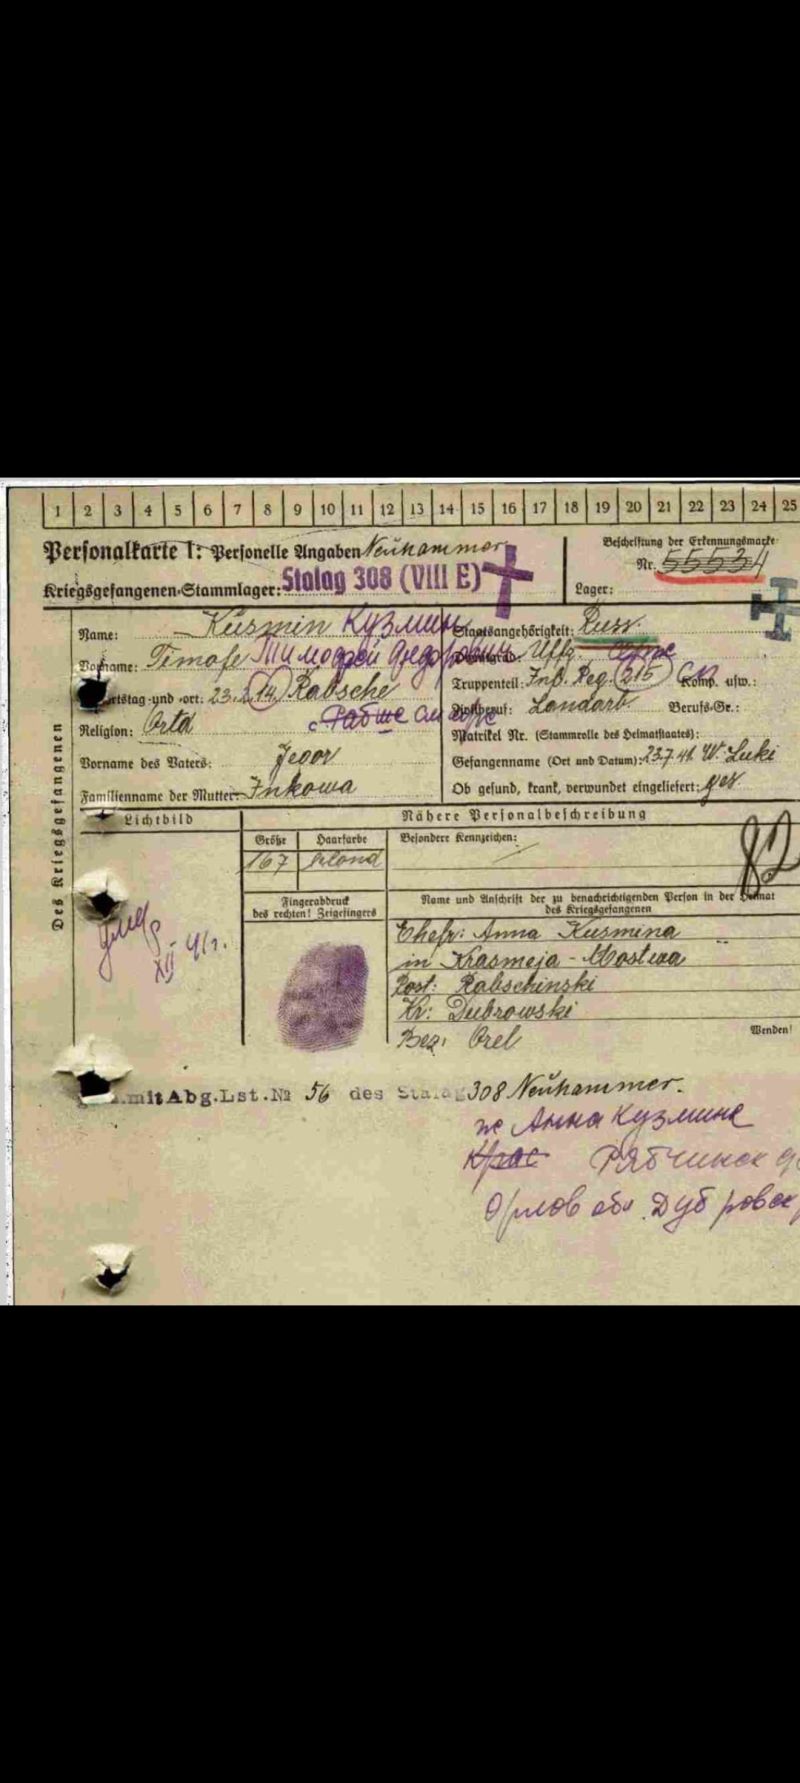 1 2 3 4 5 6 7 8 9 10 11 12 13 14 15 16 17 18 19 20 21 22 23 24 25
Personalkarte I: Personelle Angaben Neuhammer
Beschriftung der Erkennungsmarke
Nr. 55534
Kriegsgefangenen-Stammlager: Stalag 308 (VIII E)
Lager:
Des Kriegsgefangenen
Name: Kusmin Кузмин
Staatsangehörigkeit: Russ.
Vorname: Timofe Тимофей
Dienstgrad: Uffz.
rtstag und -ort: 23. 14. Rabsche
Truppenteil: Inf. Reg. 215 Komp. usw.:
Religion: Ortd
с Рабше
Zivilberuf: Landarb Berufs-Gr.:
Matrikel Nr. (Stammrolle des Heimatstaates):
Vorname des Vaters: Jegor
Gefangennahme (Ort und Datum): 23.7.41. W. Luki
Familienname der Mutter: Inkowa
Ob gesund, krank, verwundet eingeliefert: ges
Lichtbild
Nähere Personalbeschreibung
Größe Haarfarbe Besondere Kennzeichen:
167 blond
82
Fingerabdruck
des rechten! Zeigefingers
Name und Anschrift der zu benachrichtigenden Person in der Heimat
des Kriegsgefangenen
XII 41г.
Ehefr: Anna Kusmina
in Krasmeja - Mostwa
Post: Rabschinski
Kr: Dubrowski
Bez. Orel
Wenden!
mit Abg.Lst.№ 56 des Stalag 308 Neuhammer.
ж Анна Кузмина
Крас Рябчинск
Орлов обл. Дубровск